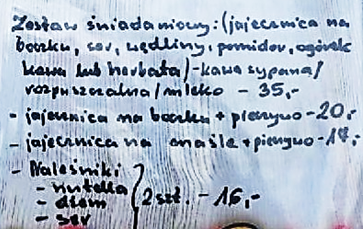 Zestaw śniadaniowy: (jajecznica na
boczku, ser, wędliny, pomidor, ogórek
kawa lub herbata) - kawa sypana/
rozpuszczalna/mleko - 35,-
- jajecznica na boczku + pieczywo - 20,-
- jajecznica na maśle + pieczywo - 17,-
- Naleśniki
- nutella
- dżem
- ser
2 szt. - 16,-